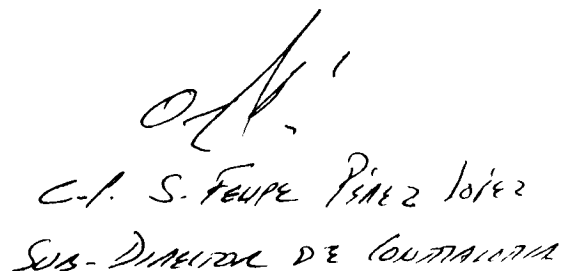 C.P. S. FELIPE PÉREZ LÓPEZ
SUB-DIRECTOR DE CONTRALORIA